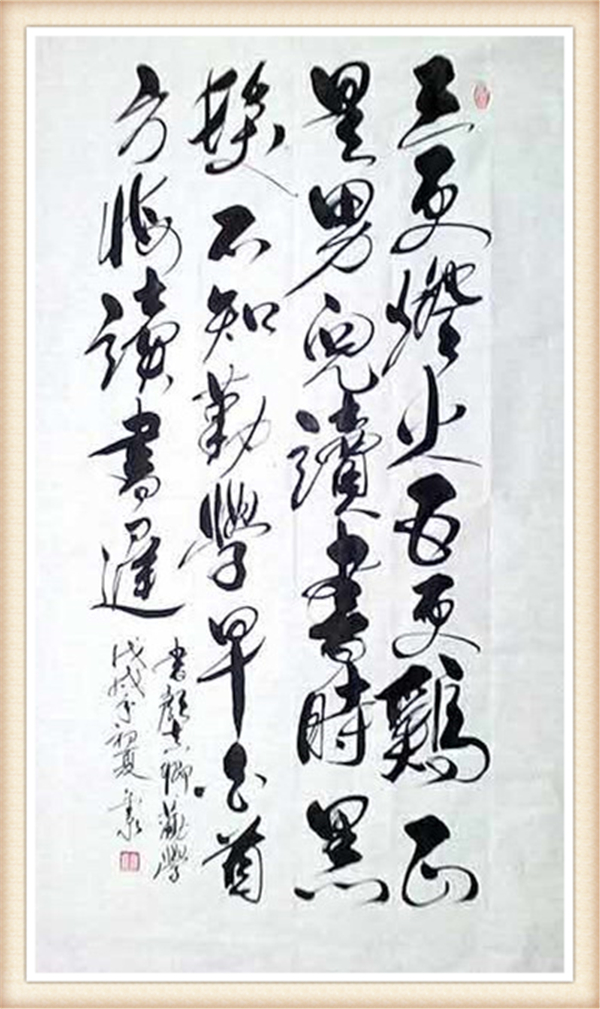 三更燈火五更鷄正
是男兒讀書時黑
髮不知勤學早白首
方悔讀書遲
书顏真卿勸學
戊戌年初夏